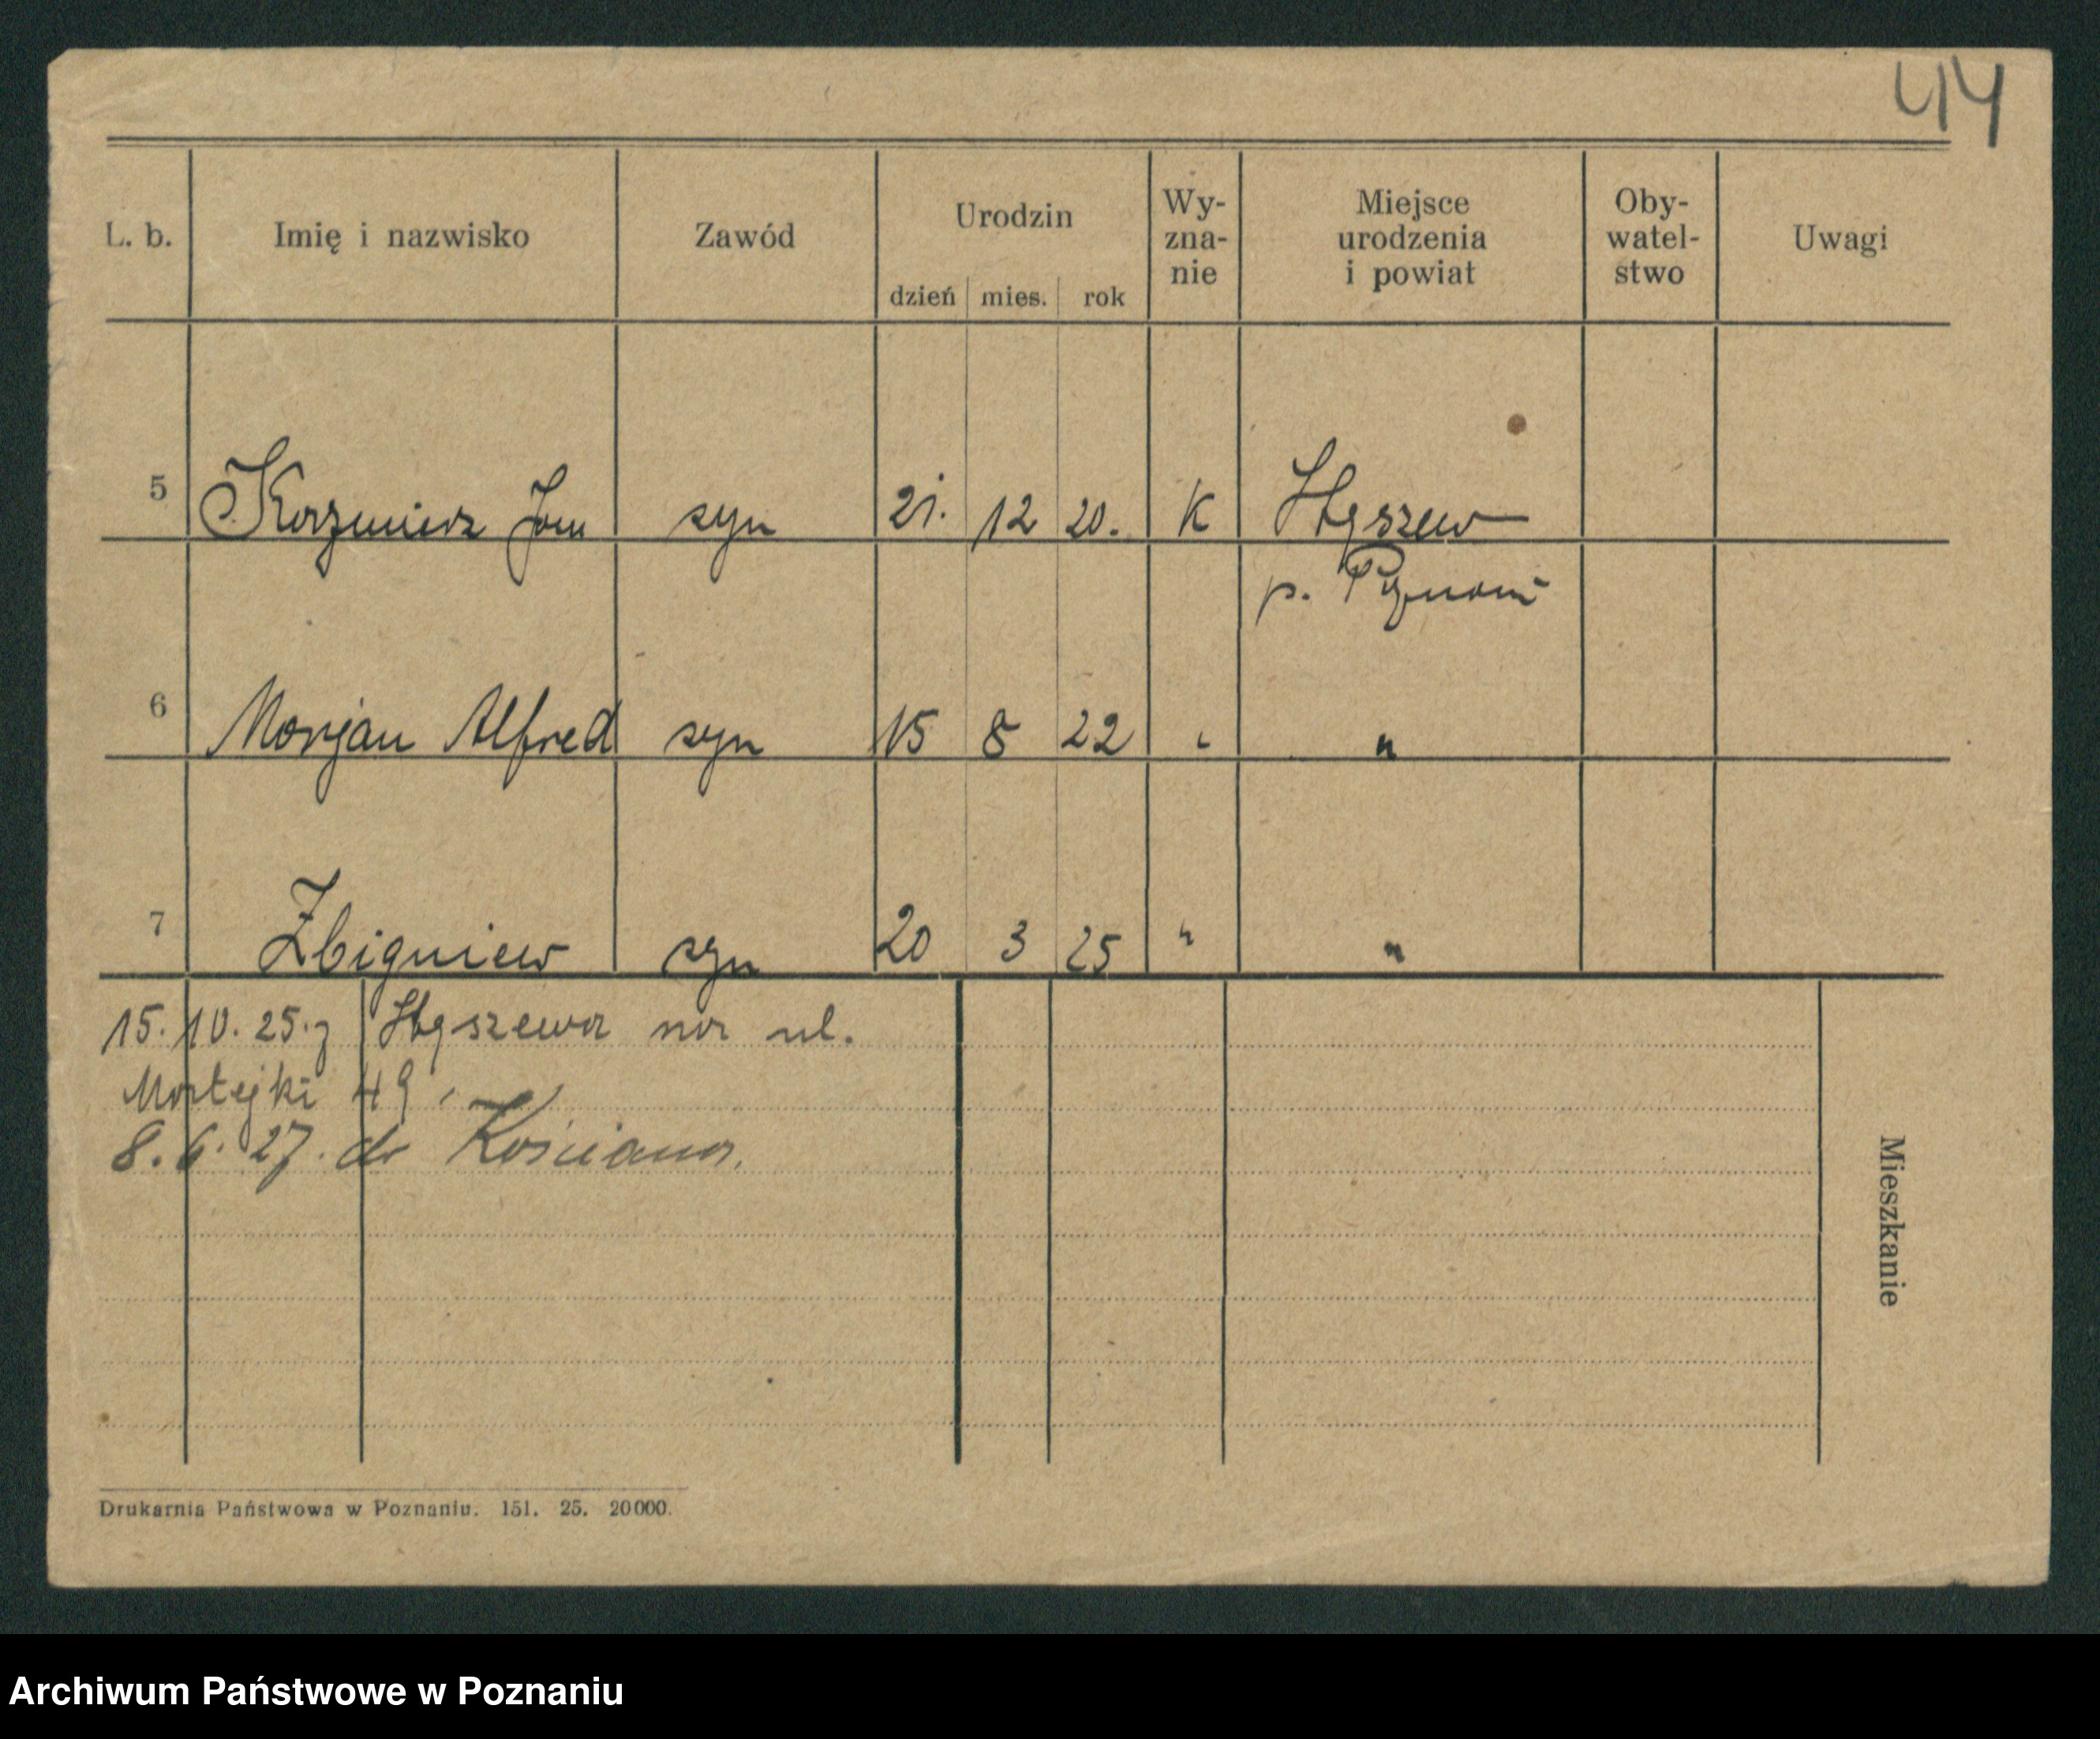 44
L. b. Imię i nazwisko Zawód Urodzin Wy- Miejsce Oby- Uwagi
zna- urodzenia watel-
nie i powiat stwo
dzień mies. rok
5 Kazimierz Jan syn 21. 12 20. K Stęszew
p. Poznań
6 Marjan Alfred syn 15 8 22 " "
7 Zbigniew syn 20 3 25 " "
15. 10. 25. z Stęszewa na ul.
Matejki 49.
8. 6. 27. do Kościana.
Mieszkanie
Drukarnia Państwowa w Poznaniu. 151. 25. 20000.
Archiwum Państwowe w Poznaniu